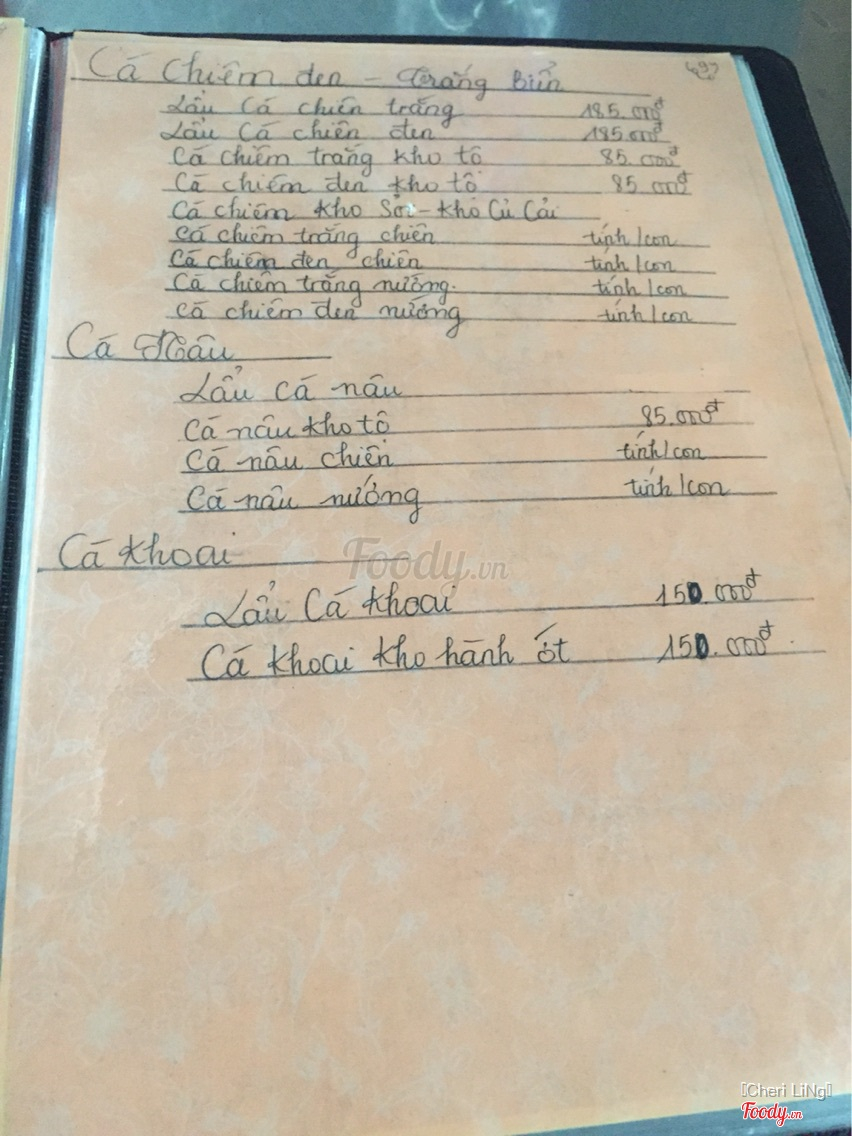 Cá Chiêm đen - Trắng Biển
Lẩu Cá chiên trắng 185.000đ
Lẩu Cá chiên đen 185.000đ
Cá chiêm trắng kho tộ 85.000đ
Cá chiêm đen kho tộ 85.000đ
Cá chiêm kho - kho Củ Cải
Cá chiêm trắng chiên tính/con
Cá chiêm đen chiên tính/con
Cá chiêm trắng nướng. tính/con
Cá chiêm đen nướng tính/con
Cá Nâu
Lẩu cá nâu
Cá nâu kho tộ 85.000đ
Cá nâu chiên tính/con
Cá nâu nướng tính/con
Cá khoai
Foody.vn
Lẩu Cá khoai 150.000đ
Cá khoai kho hành ớt 150.000đ
[Cheri LiNg]
Foody.vn